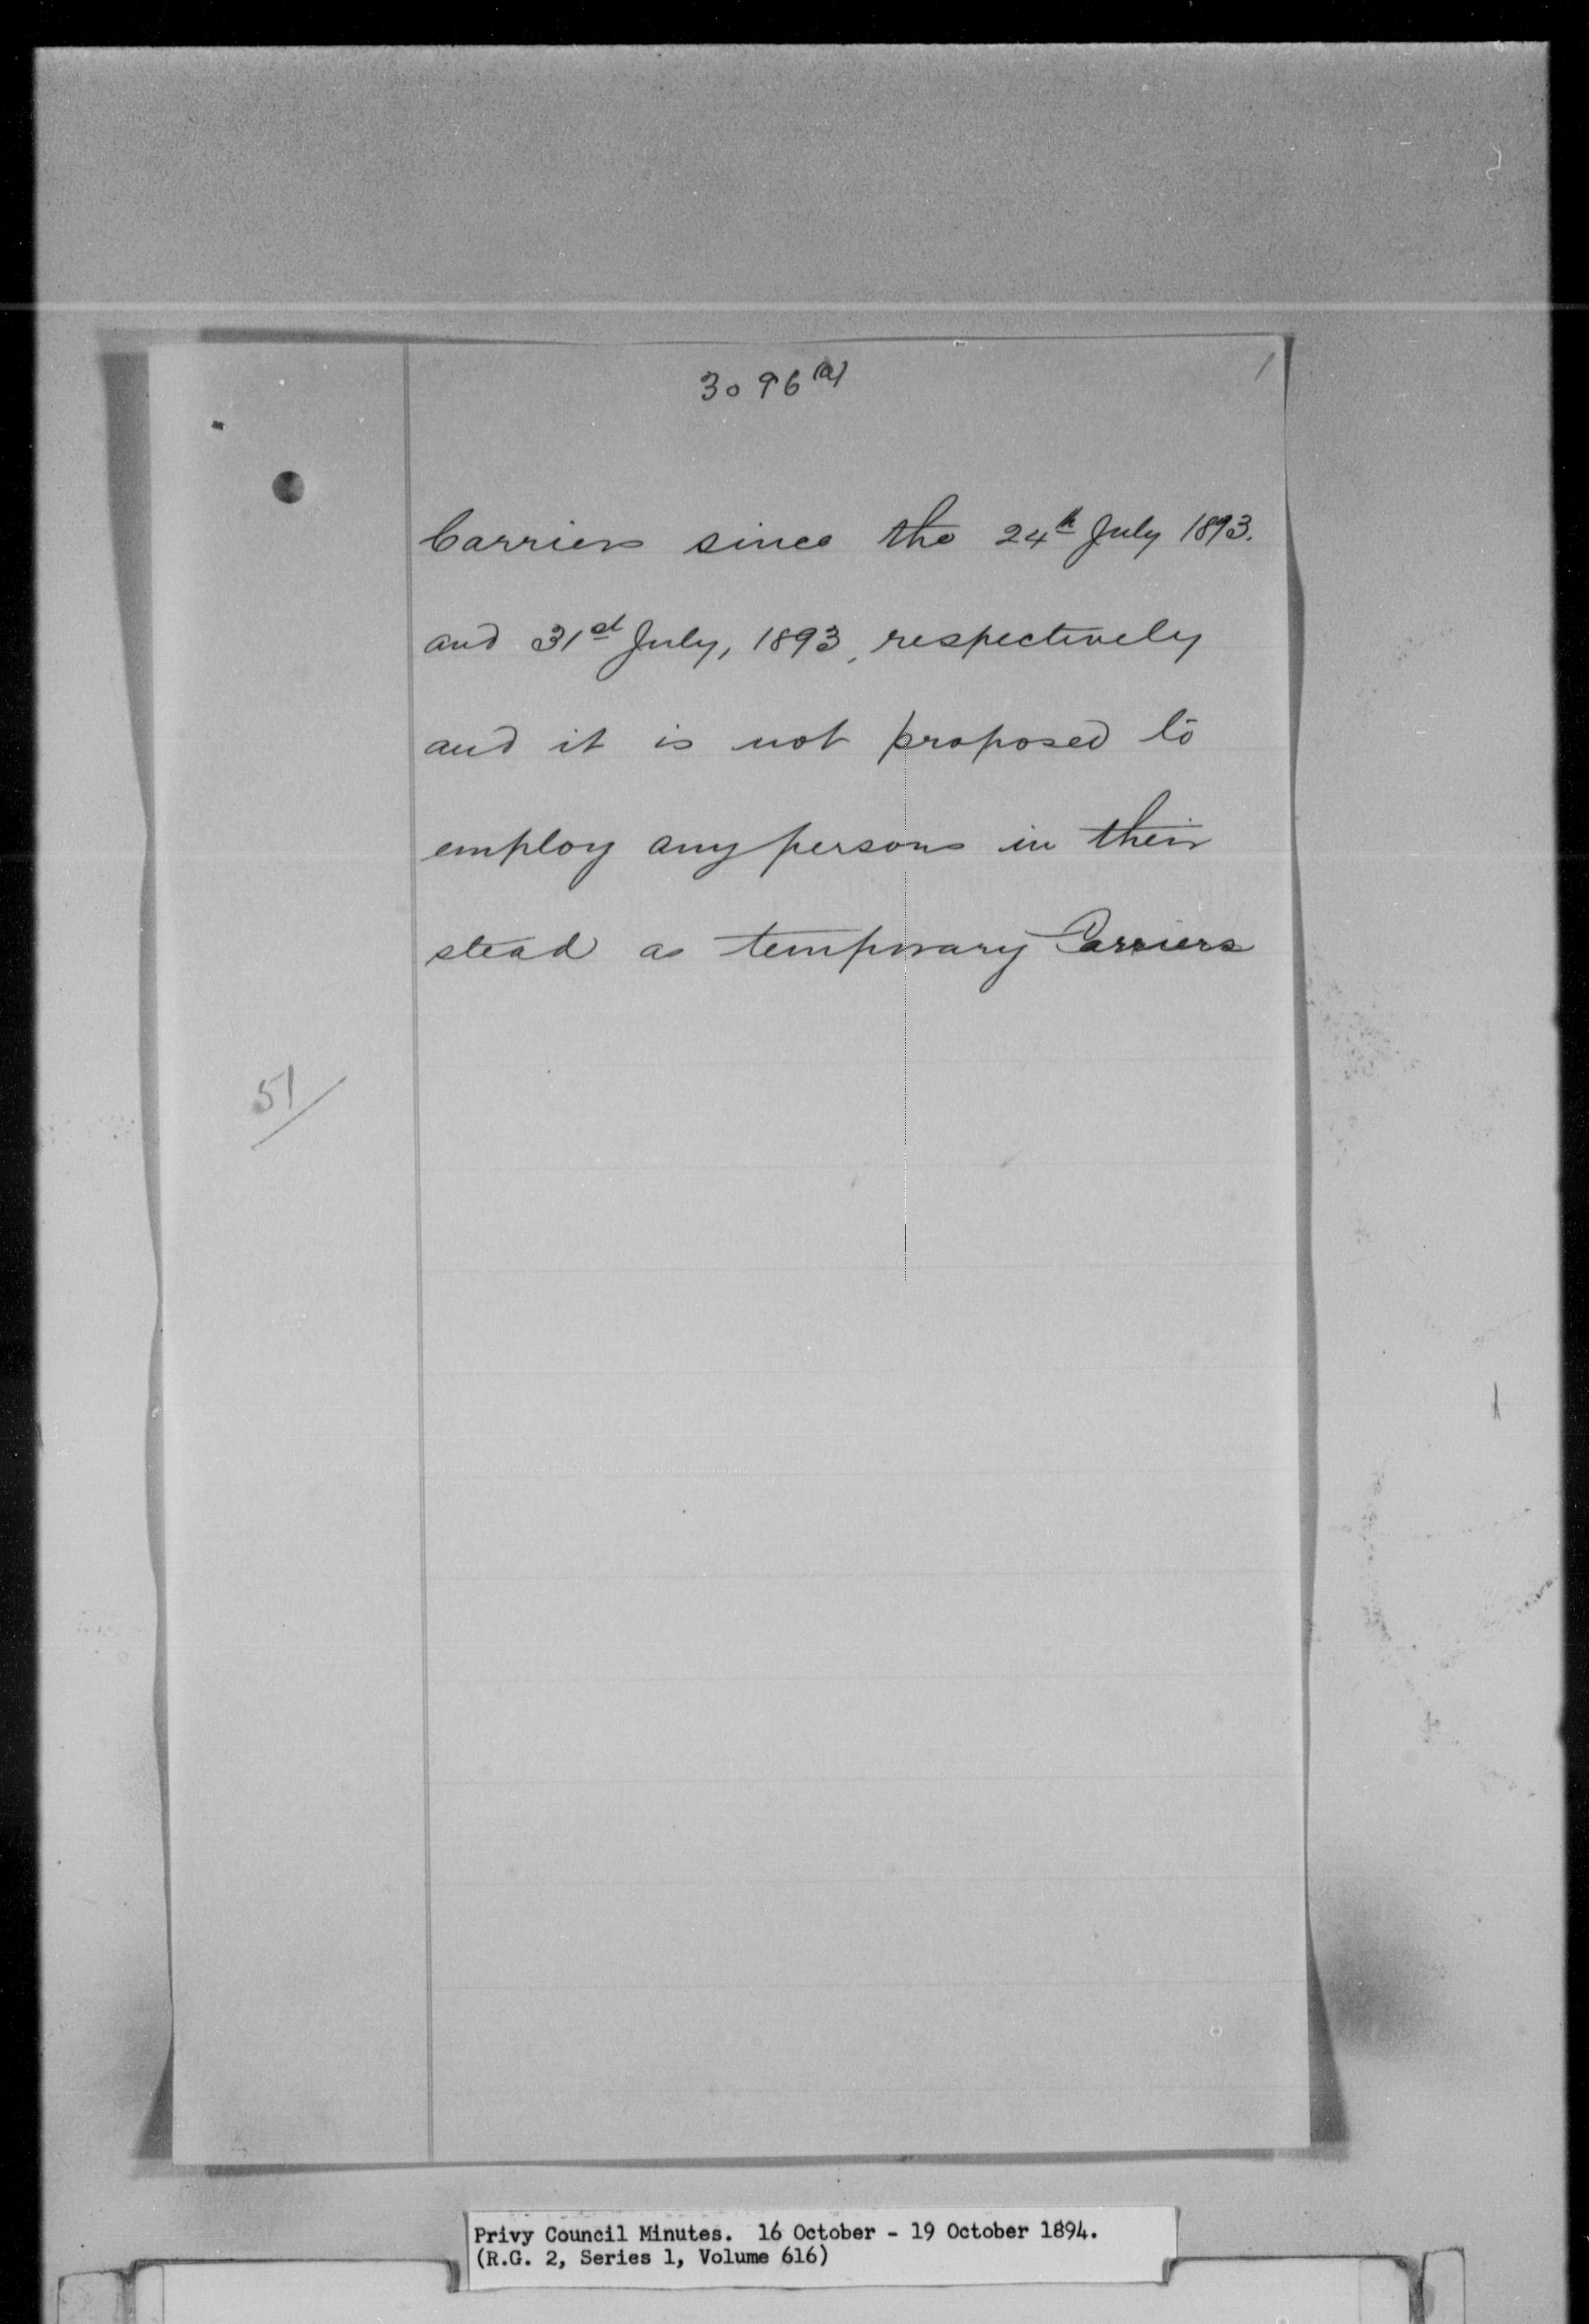 3096(a)
Carriers since the 24th July 1893.
and 31st July, 1893, respectively
and it is not proposed to
employ any persons in their
stead as temporary Carriers
51/
Privy Council Minutes. 16 October - 19 October 1894.
(R.G. 2, Series 1, Volume 616)